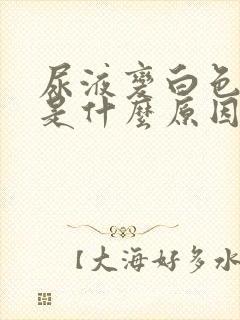 尿液變白色
是什麼原因
【大海好多水